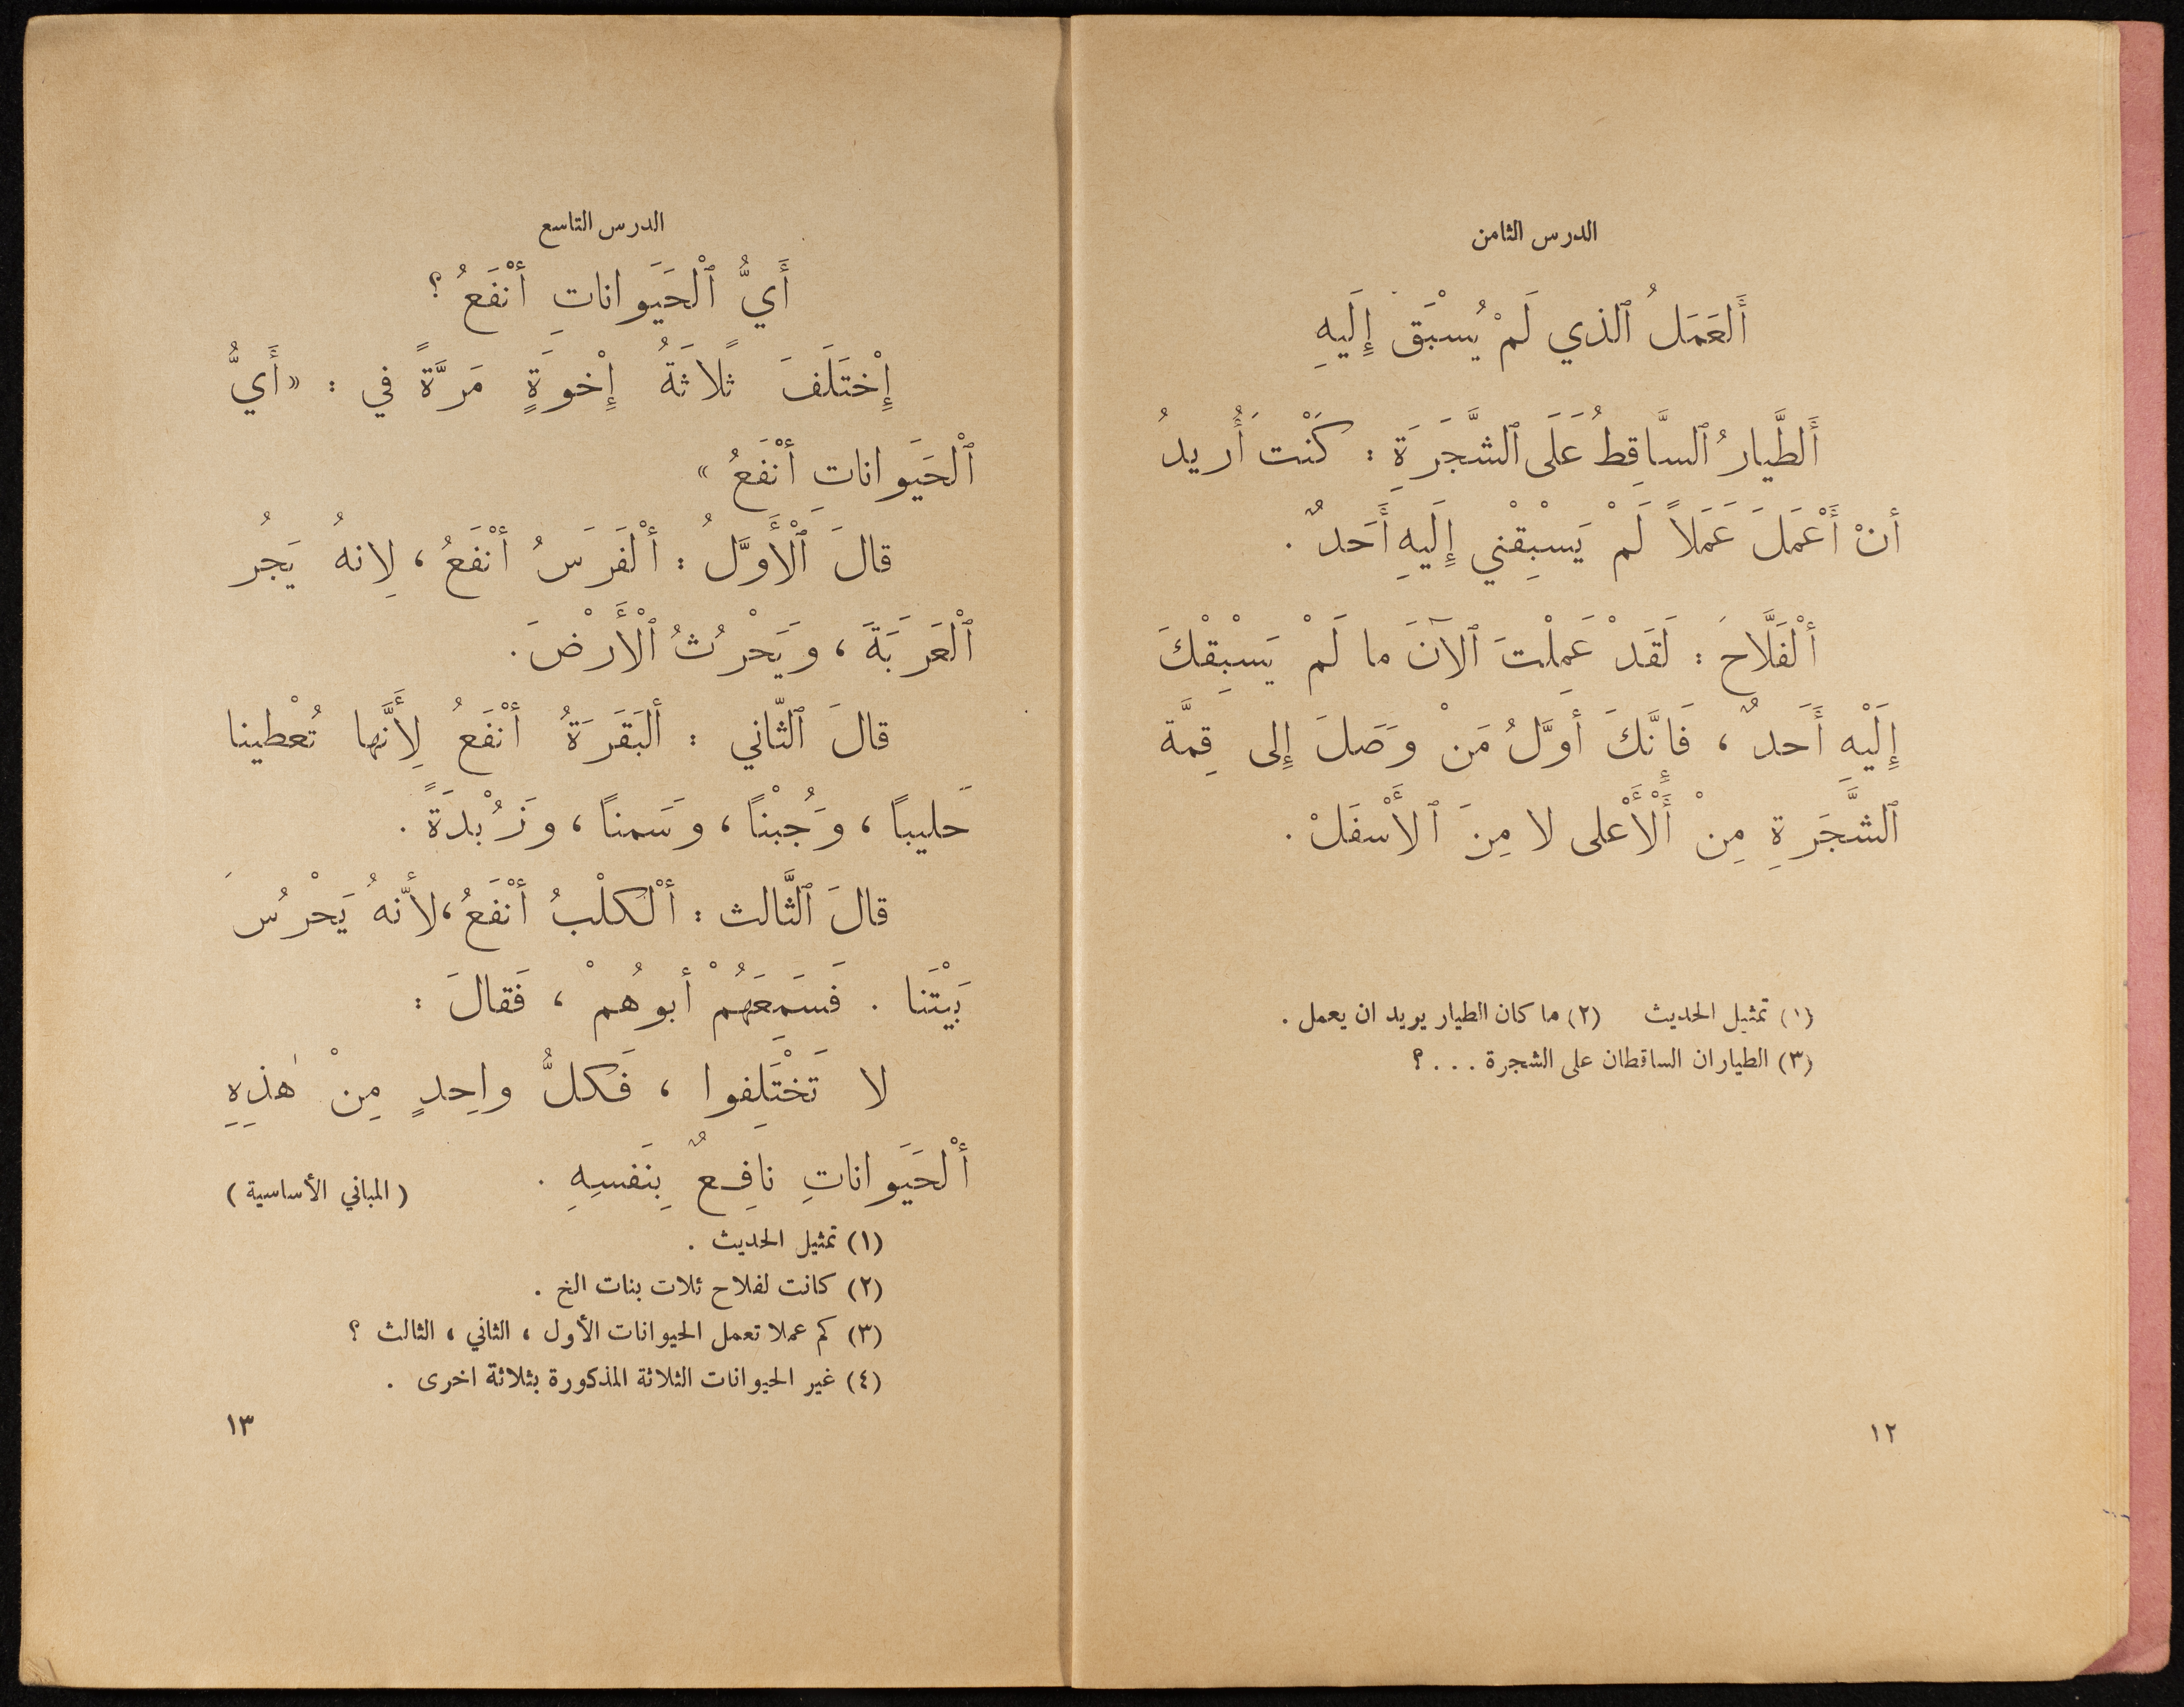 الدرس الثامن
أَلعَمَلُ ٱلذي لَمْ يُسْبَقْ إِلَيهِ
أَلطَّيارُ ٱلسَّاقِطُ عَلَى ٱلشَّجَرَةِ : كَنْتَ أُريدُ
أنْ أَعْمَلَ عَمَلاً لَمْ يَسْبِقْني إِلَيهِ أَحَدٌ .
أَلْفَلَّاحَ : لَقَدْ عَمِلْتَ ٱلآنَ ما لَمْ يَسْبِقْكَ
إِلَيْهِ أَحَدٌ ، فَإِنَّكَ أوَّلُ مَنْ وَصَلَ إِلى قِمَّة
ٱلشَّجَرةِ مِنْ أَلْأَعْلى لا مِنَ ٱلأَسْفَلْ .
(١) تمثيل الحديث (٢) ما كان الطيار يريد ان يعمل .
(٣) الطياران الساقطان على الشجرة . . . ؟
١٢
الدرس التاسع
أَيُّ ٱلْحَيَوانَاتِ أنْفَعُ ؟
إِخْتَلَفَ ثَلاَثَةُ إِخْوَةٍ مَرَّةً في : «أَيُّ
ٱلْحَيَوانَاتِ أنْفَعُ »
قالَ ٱلْأَوَّلُ : ألْفَرَسُ أنْفَعُ ، لِانهُ يَجُر
ٱلْعَرَبَةَ ، وَيَحْرُثُ ٱلْأَرْضَ .
قالَ ٱلثّاني : ألبَقَرَةُ أنْفَعُ لِأَنَّها تُعْطينا
حَليبًا ، وَجُبْنًا ، وَسَمنًا ، وَزُبْدَةً .
قالَ ٱلثَّالث : ألْكلْبُ أنْفَعُ ، لأنّهُ يَحْرُسَ
بَيْتَنا . فَسَمِعَهُمْ أبوهُمْ ، فَقالَ :
لا تَخْتَلِفوا ، فَكلُّ واحِدٍ مِنْ هٰذِهِ
ألْحَيَواناتِ نافِعٌ بِنَفسِهِ . ( المباني الأساسية )
(١) تمثيل الحديث .
(٢) كانت لفلاح ثلاث بنات الخ .
(٣) كم عملا تعمل الحيوانات الأول ، الثاني ، الثالث ؟
(٤) غير الحيوانات الثلاثة المذكورة بثلاثة اخرى .
١٣